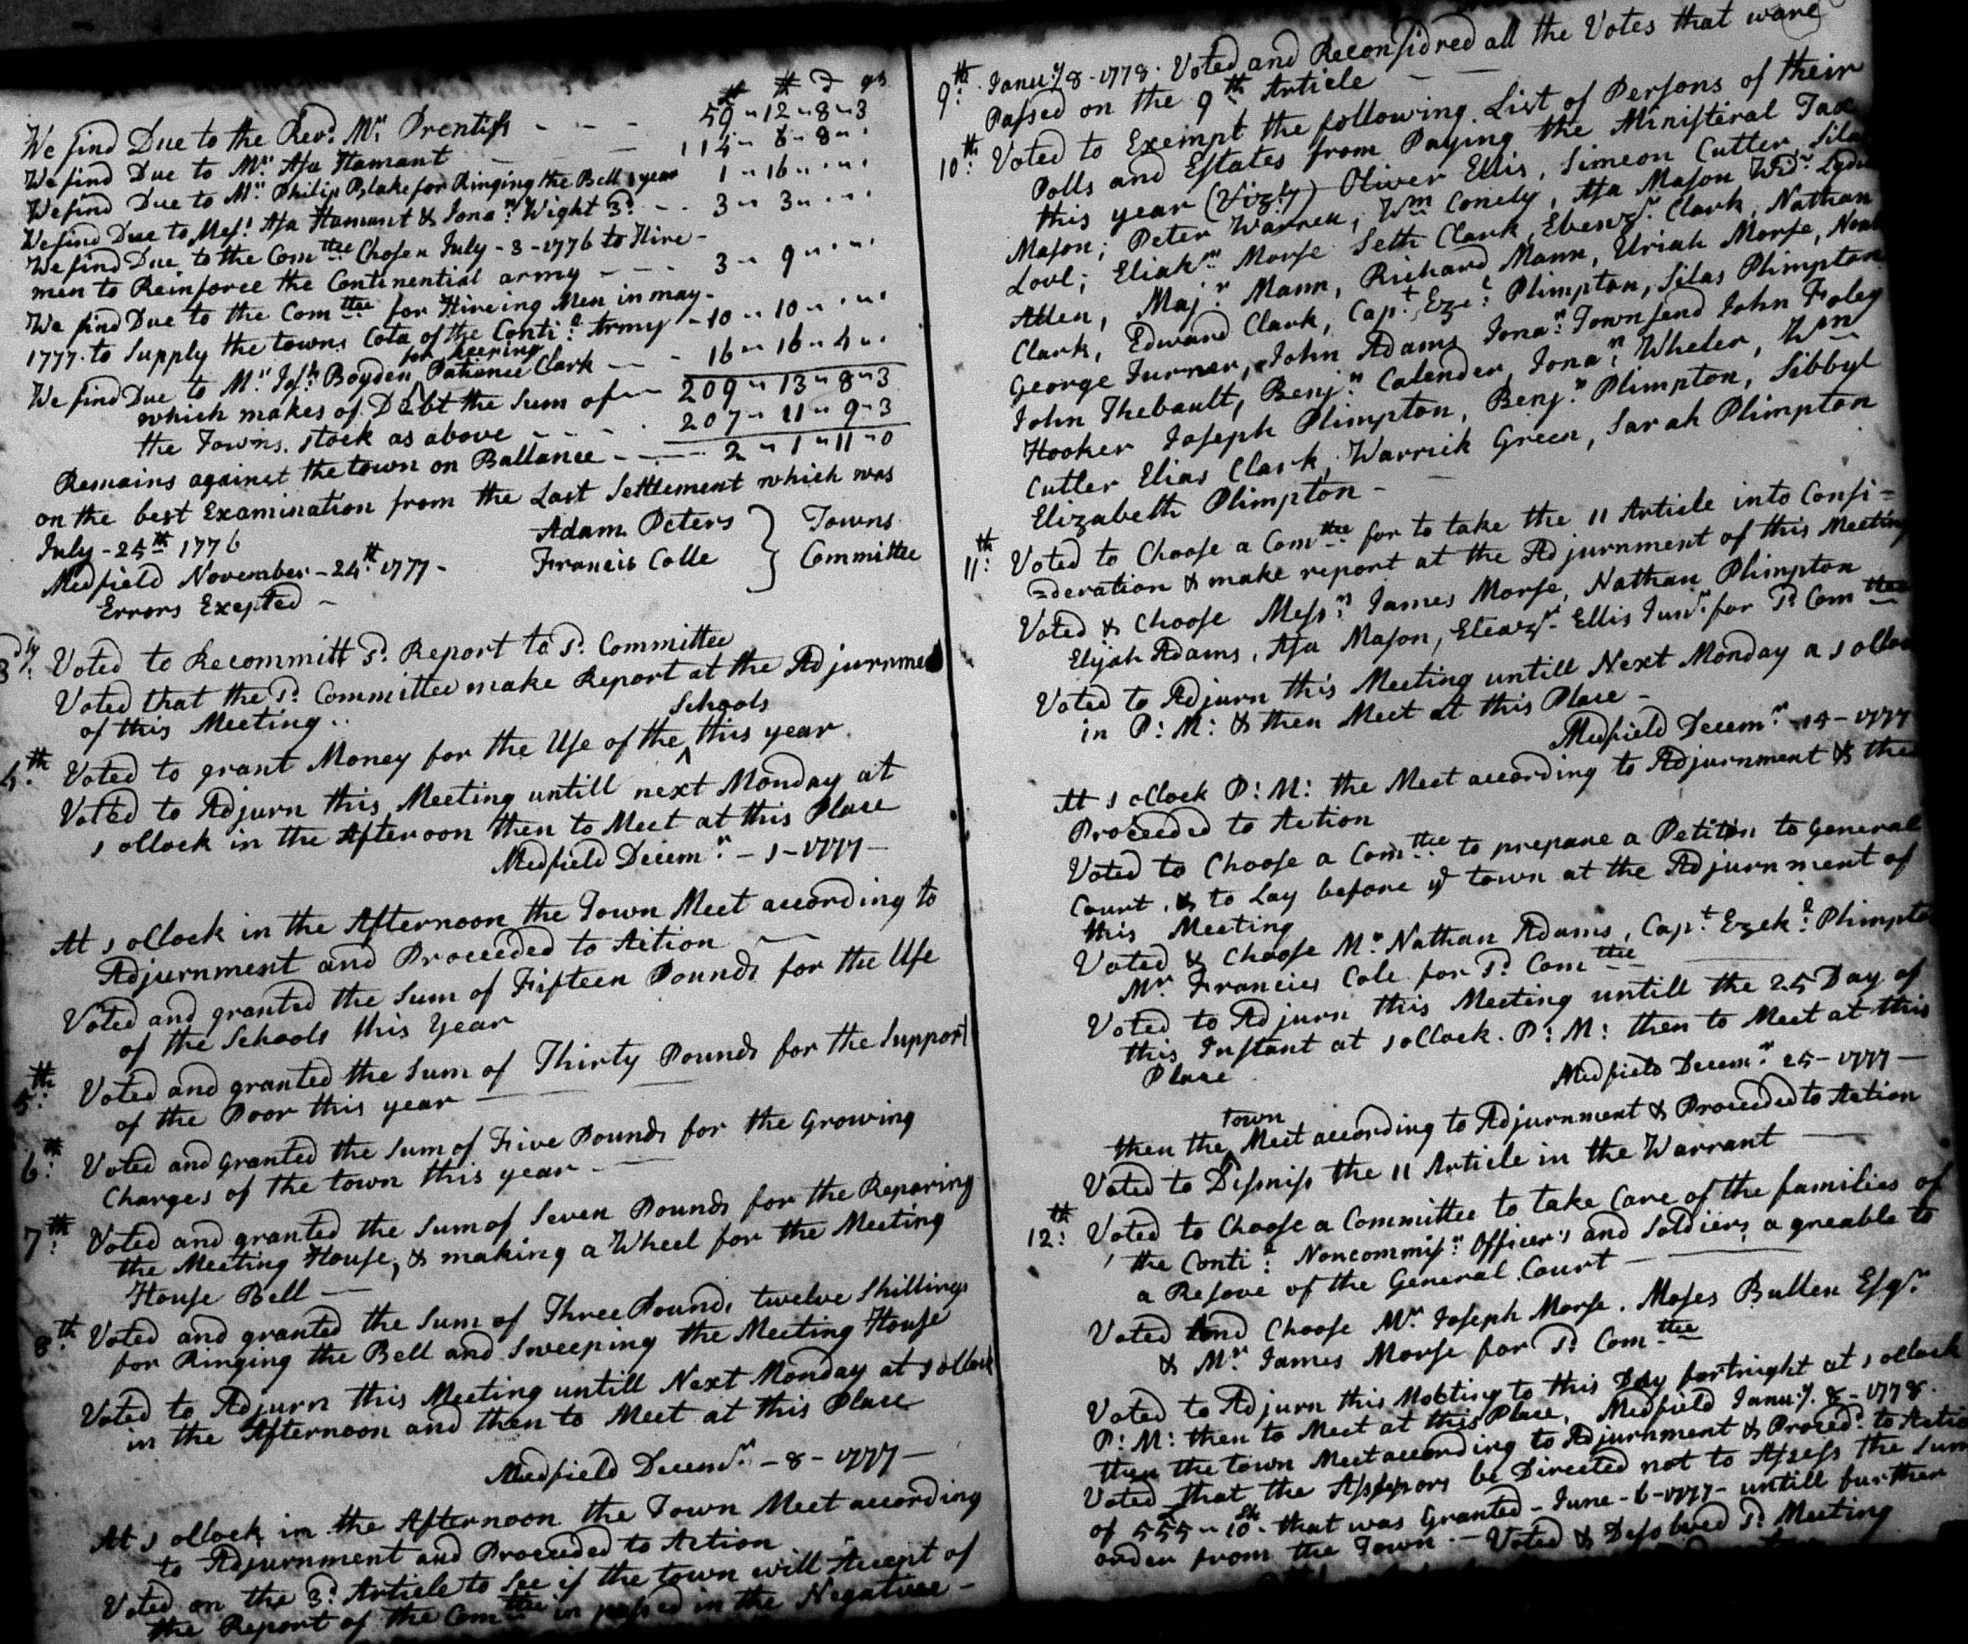 # # D qrs
We find Due to the Revd. Mr. Prentiss - - - 59 " 12 " 8 " 3
We find Due to Mr. Asa Hamant - - 114 " 8 " 8 "
We find Due to Mr. Philip Blake for Ringing the Bell 1 year 1 " 16 "
We find Due to Mess. Asa Hamant & Jonan. Wight 3d. - - 3 " 3 "
We find Due to the Comttee Chosen July - 8 - 1776 to Hire -
men to Reinforce the Continential army - - - 3 " 9 "
We find Due to the Comttee for Hireing Men in may -
1777 to Supply the towns Cota of the Contil. Army - 10 " 10 "
We find Due to Mr. Josh. Boyden for keeping Patience Clark - - 16 " 16 " 4 "
which makes of Debt the Sum of - 209 " 13 " 8 " 3
the Towns. stock as above - - - 207 " 11 " 9 - 3
Remains against the town on Ballance - - 2 " 1 " 11 " 0
on the best Examination from the Last Settlement which was
July - 24th 1776 Adam Peters } Towns
Medfield November - 24th. 1777 - Francis Colle } Committee
Errors Exepted -
3dly: Voted to Recommitt Sd. Report to Sd. Committee
Voted that the Sd. Committee make Report at the Adjurnment
of this Meeting..
4th: Voted to grant Money for the Use of the Schools this year
Voted to Adjurn this Meeting untill next Monday at
1 ollock in the Afternoon then to Meet at this Place
Medfield Decemr. - 1 - 1777 -
At 1 ollock in the Afternoon the Town Meet according to
Adjurnment and Proceeded to Action
Voted and granted the Sum of Fifteen Pounds for the Use
of the Schools this Year
5th: Voted and granted the Sum of Thirty Pounds for the Support
of the Poor this year
6th: Voted and granted the Sum of Five Pounds for the Growing
Charges of the town this year -
7th: Voted and granted the Sum of Seven Pounds for the Reparing
the Meeting House, & making a Wheel for the Meeting
House Bell -
8th: Voted and granted the Sum of Three Pounds twelve Shillings
for Ringing the Bell and Sweeping the Meeting House
Voted to Adjurn this Meeting untill Next Monday at 1 ollock
in the Afternoon and then to Meet at this Place
Medfield Decemr. - 8 - 1777 -
At 1 ollock in the Afternoon the Town Meet according
to Adjurnment and Proceeded to Action
Voted on the 3d. Article to See if the town will Accept of
the Report of the Comttee in passed in the Negative -
9th: Janury 8 - 1778. Voted and Reconsidred all the Votes that ware
Passed on the 9th Article
10th: Voted to Exempt the following List of Persons of their
Polls and Estates from Paying the Ministeral Tax
this year (Vizly) Oliver Ellis, Simeon Cutler, Silas
Mason; Peter Warren, Wm Conely, Asa Mason Wd. Lydia
Lovl; Eliakm. Morse Seth Clark, Ebenzr. Clark, Nathan
Allen, Majr. Mann, Richard Mann, Uriah Morse, Noah
Clark, Edward Clark, Capt. Ezel. Plimpton, Silas Plimpton
George Turner, John Adams, Jonan. Townsend John Foley
John Thebault, Benjn. Calender, Jonan. Wheler, Wm
Hooker Joseph Plimpton, Benjn. Plimpton, Sibbyl
Cutler Elias Clark, Warrick Green, Sarah Plimpton
Elizabeth Plimpton -
11th: Voted to Choose a Comttee for to take the 11 Article into Consi=
=deration & make report at the Adjurnment of this Meeting
Voted & Choose Messrs. James Morse, Nathan Plimpton
Elijah Adams, Asa Mason, Eleazr. Ellis Junr. for Sd. Comttee
Voted to Adjurn this Meeting untill Next Monday a 1 ollock
in P: M: & then Meet at this Place -
Medfield Decemr. - 15 - 1777
At 1 ollock P: M: the Meet according to Adjurnment & then
Proceeded to Action
Voted to Choose a Comttee to prepare a Petition to General
Court, & to Lay before ye town at the Adjurnment of
this Meeting
Voted & Choose Mr. Nathan Adams, Capt. Ezekl. Plimpton
Mr. Francies Cole for Sd. Comttee
Voted to Adjurn this Meeting untill the 25 Day of
this Instant at 1 ollock. P: M: then to Meet at this
Place
Medfield Decemr. 25 - 1777 -
then the Town Meet according to Adjurnment & Proceeded to Action
Voted to Dismiss the 11 Article in the Warrant
12th: Voted to Choose a Committee to take Care of the families of
the Contil. Noncommisn. Officers and Soldiers agreable to
a Resove of the General Court
Voted and Choose Mr. Joseph Morse. Moses Bullen Esqr.
& Mr. James Morse for Sd. Comttee
Voted to Adjurn this Meeting to this Day fortnight at 1 ollock
P: M: then to Meet at this Place, Medfield Janury. 8 - 1778.
then the town Meet according to Adjurnment & Proced. to Action
Voted that the Assessors be Directed not to Assess the Sum
of 555 " 10 that was Granted - June - 6 - 1777 - untill further
order from the Town. - Voted & Desolved Sd. Meeting